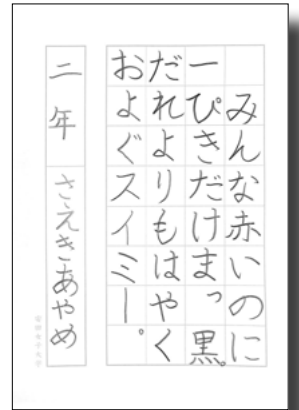 みんな赤いのに
一ぴきだけまっ黒。
だれよりもはやく
およぐスイミー。
二年 さえきあやめ